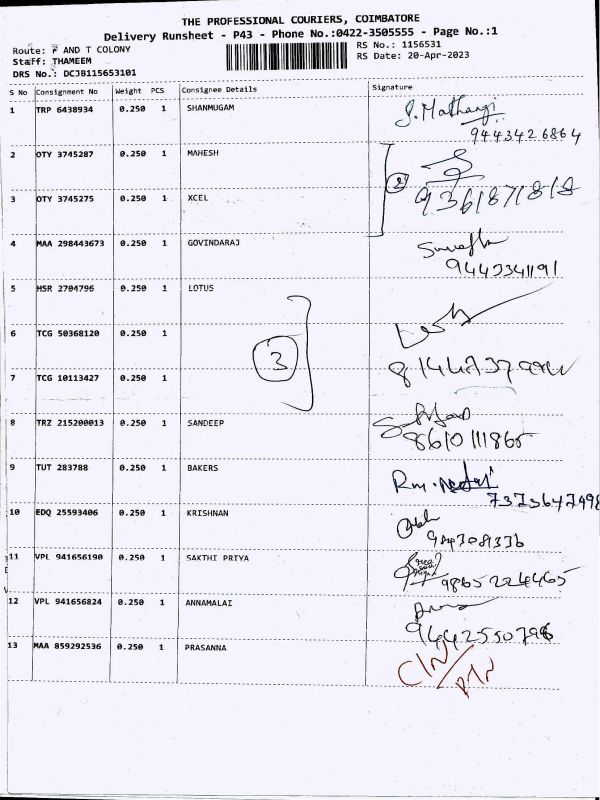 THE PROFESSIONAL COURIERS, COIMBATORE
Delivery Runsheet - P43 - Phone No.:0422-3505555 - Page No.:1
Route: P AND T COLONY
RS No.: 1156531
Staff: THAMEEM
RS Date: 20-Apr-2023
DRS No.: DCJB115653101
S No Consignment No Weight PCS Consignee Details Signature
1 TRP 6438934 0.250 1 SHANMUGAM J. Mathangi
9443426864
2 OTY 3745287 0.250 1 MAHESH
2
3 OTY 3745275 0.250 1 XCEL 9361871818
4 MAA 298443673 0.250 1 GOVINDARAJ
9443341191
5 HSR 2704796 0.250 1 LOTUS
6 TCG 50368120 0.250 1
3
7 TCG 10113427 0.250 1
8 TRZ 215200013 0.250 1 SANDEEP
8610111865
9 TUT 283788 0.250 1 BAKERS
7373647498
10 EDQ 25593406 0.250 1 KRISHNAN
11 VPL 941656190 0.250 1 SAKTHI PRIYA
9865224465
12 VPL 941656824 0.250 1 ANNAMALAI
9442550796
13 MAA 859292536 0.250 1 PRASANNA